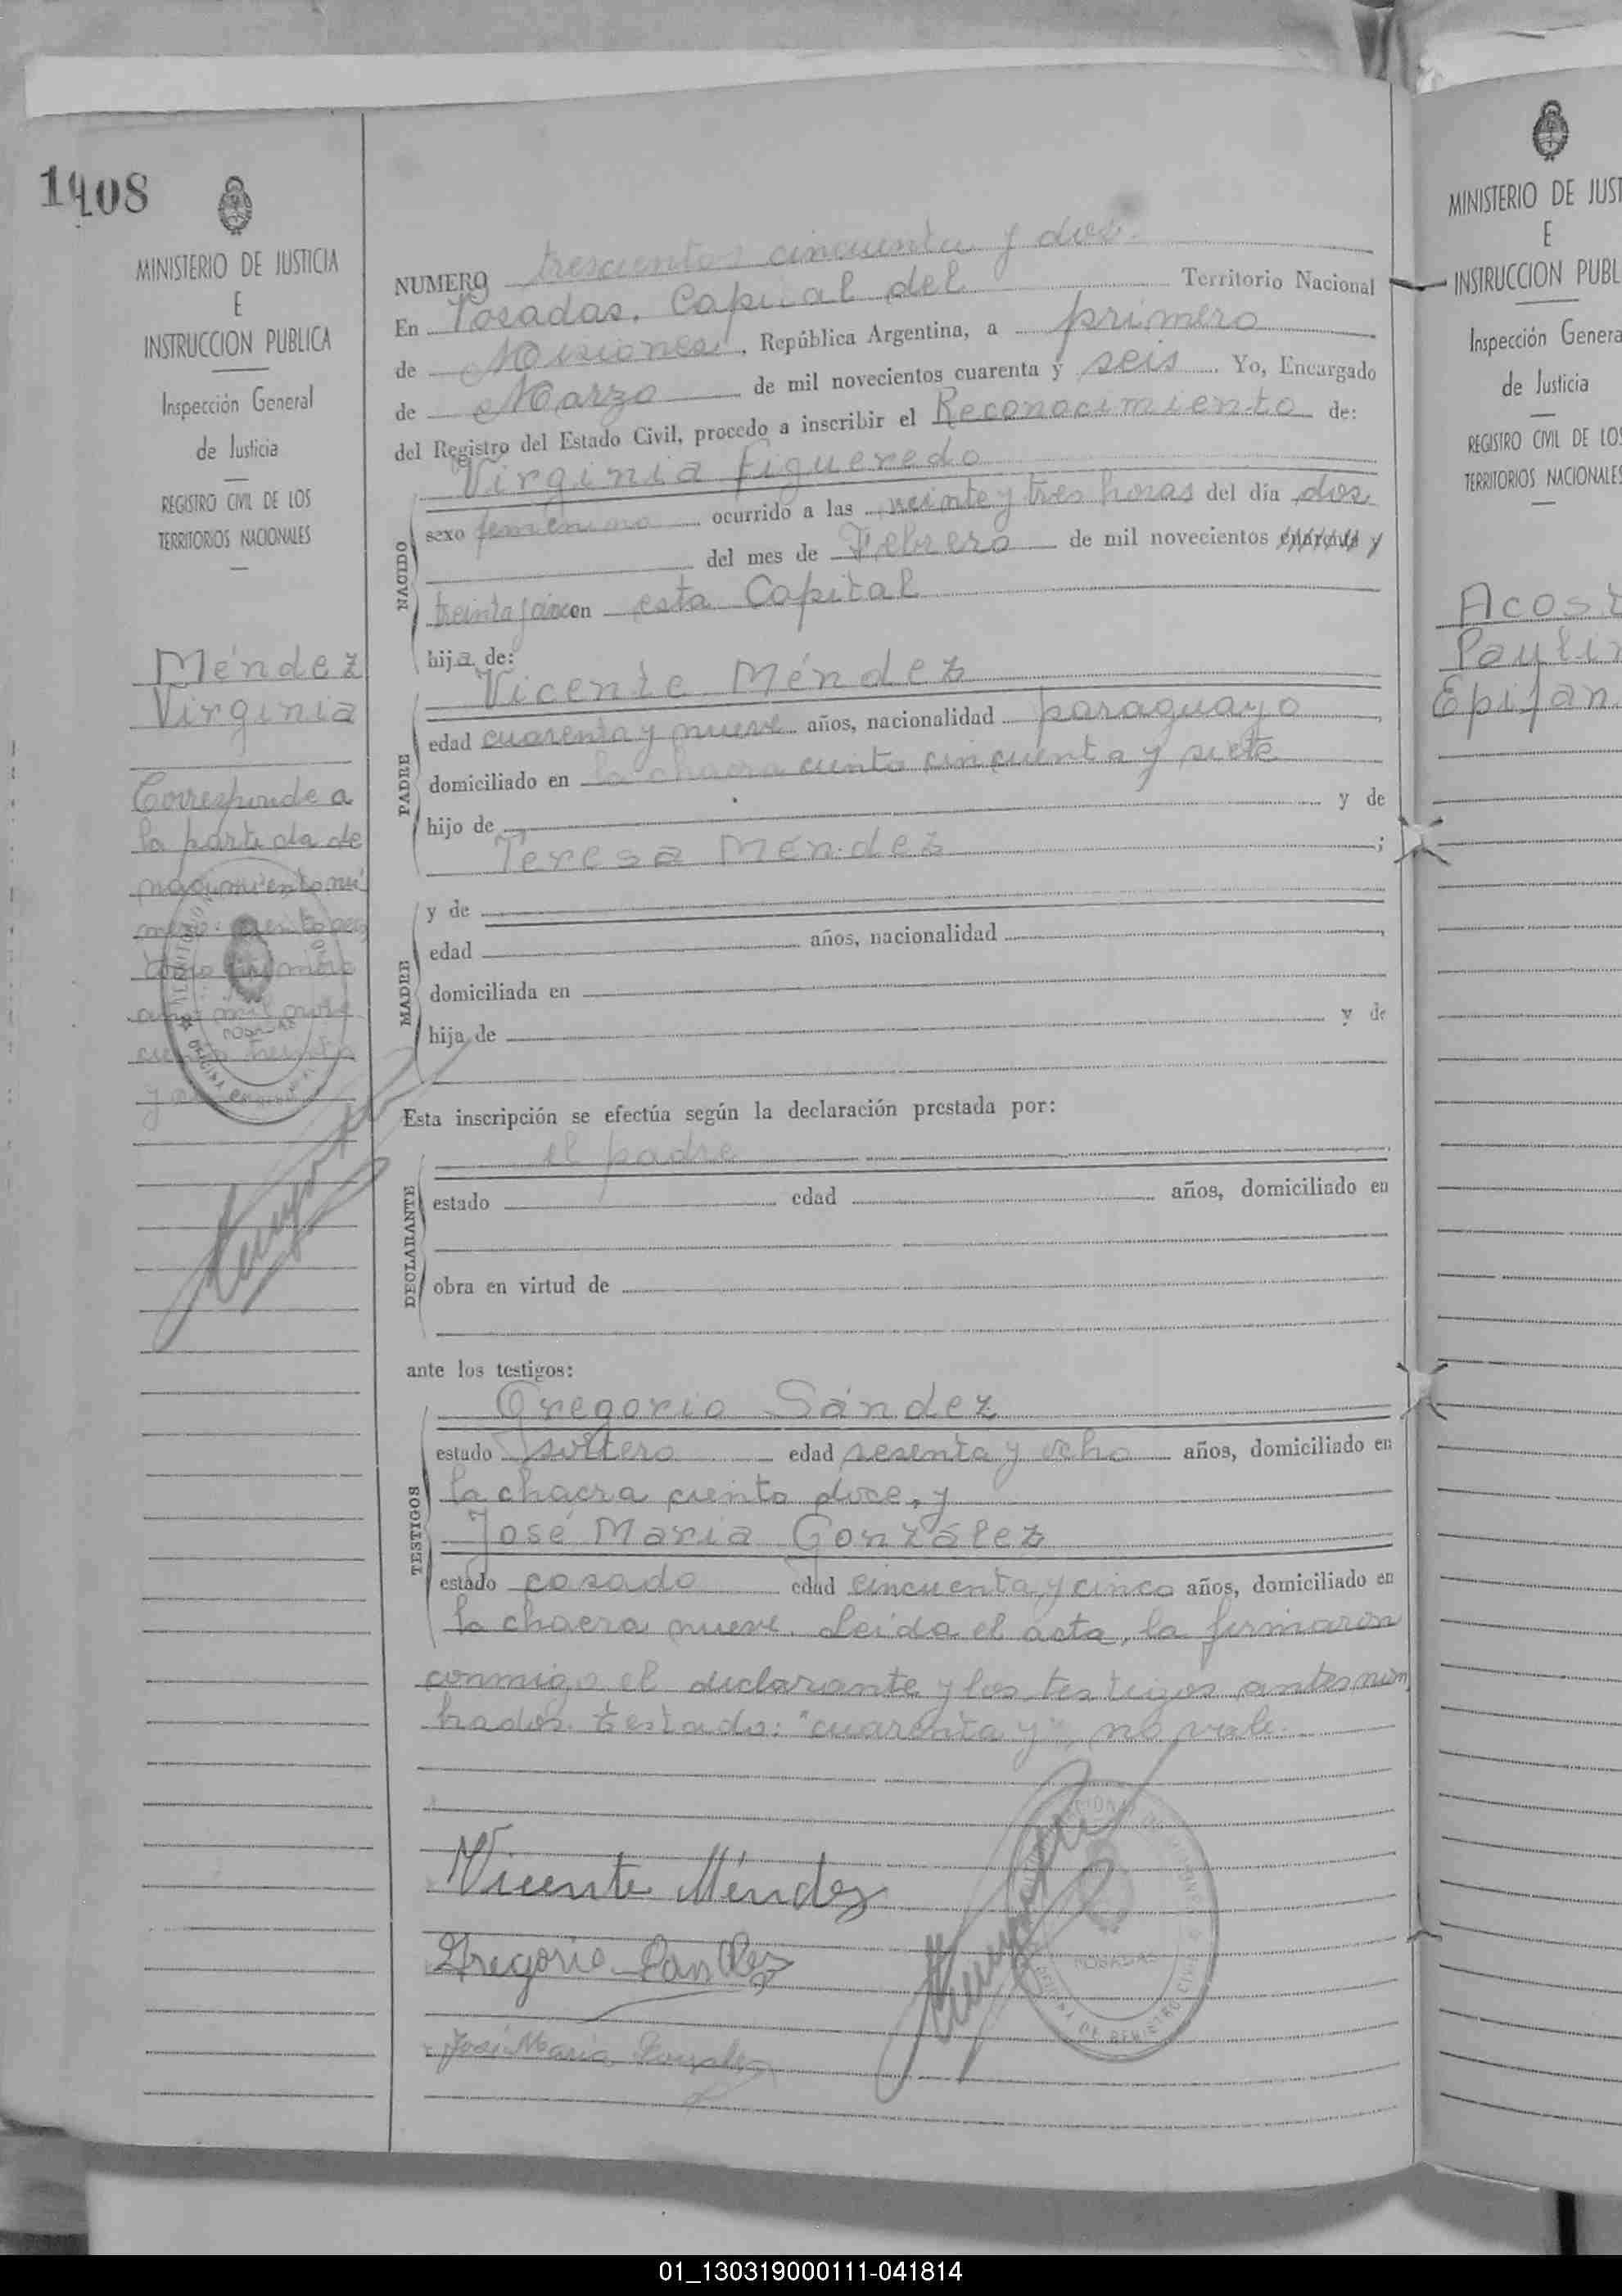 1408
MINISTERIO DE JUSTICIA
E
INSTRUCCION PUBLICA
Inspección General
de Justicia
REGISTRO CIVIL DE LOS
TERRITORIOS NACIONALES
Méndez
Virginia
Corresponde a
la partida de
nacimiento nú
mero:
tomo primero
año mil nove
cientos treinta
y
NUMERO trescientos cincuenta y dos.
En Posadas, Capital del Territorio Nacional
de Misiones, República Argentina, a primero
de Marzo de mil novecientos cuarenta y seis. Yo, Encargado
del Registro del Estado Civil, procedo a inscribir el Reconocimiento de:
Virginia Figueredo
NACIDO
sexo femenino ocurrido a las veinte y tres horas del día dos
del mes de Febrero de mil novecientos cuarenta y
treinta y en esta Capital
hija de:
PADRE
Vicente Méndez
edad cuarenta y nueve años, nacionalidad paraguayo,
domiciliado en la chacra ciento cincuenta y siete
hijo de y de
Teresa Méndez;
MADRE
y de
edad años, nacionalidad
domiciliada en
hija de y de
Esta inscripción se efectúa según la declaración prestada por:
DECLARANTE
el padre
estado edad años, domiciliado en
obra en virtud de
ante los testigos:
TESTIGOS
Gregorio Sández
estado soltero edad sesenta y ocho años, domiciliado en
la chacra ciento doce, y
José María González
estado casado edad cincuenta y cinco años, domiciliado en
la chacra nueve. Leída el acta, la firmaron
conmigo el declarante y los testigos antes nom
brados. testado: "cuarenta y", no vale.
Vicente Méndez
Gregorio Sandez
José María Gonzalez
POSADAS
MINISTERIO DE JUST
E
INSTRUCCION PUBL
Inspección Genera
de Justicia
REGISTRO CIVIL DE LOS
TERRITORIOS NACIONALES
Acost
Paulin
Epifan
01_130319000111-041814